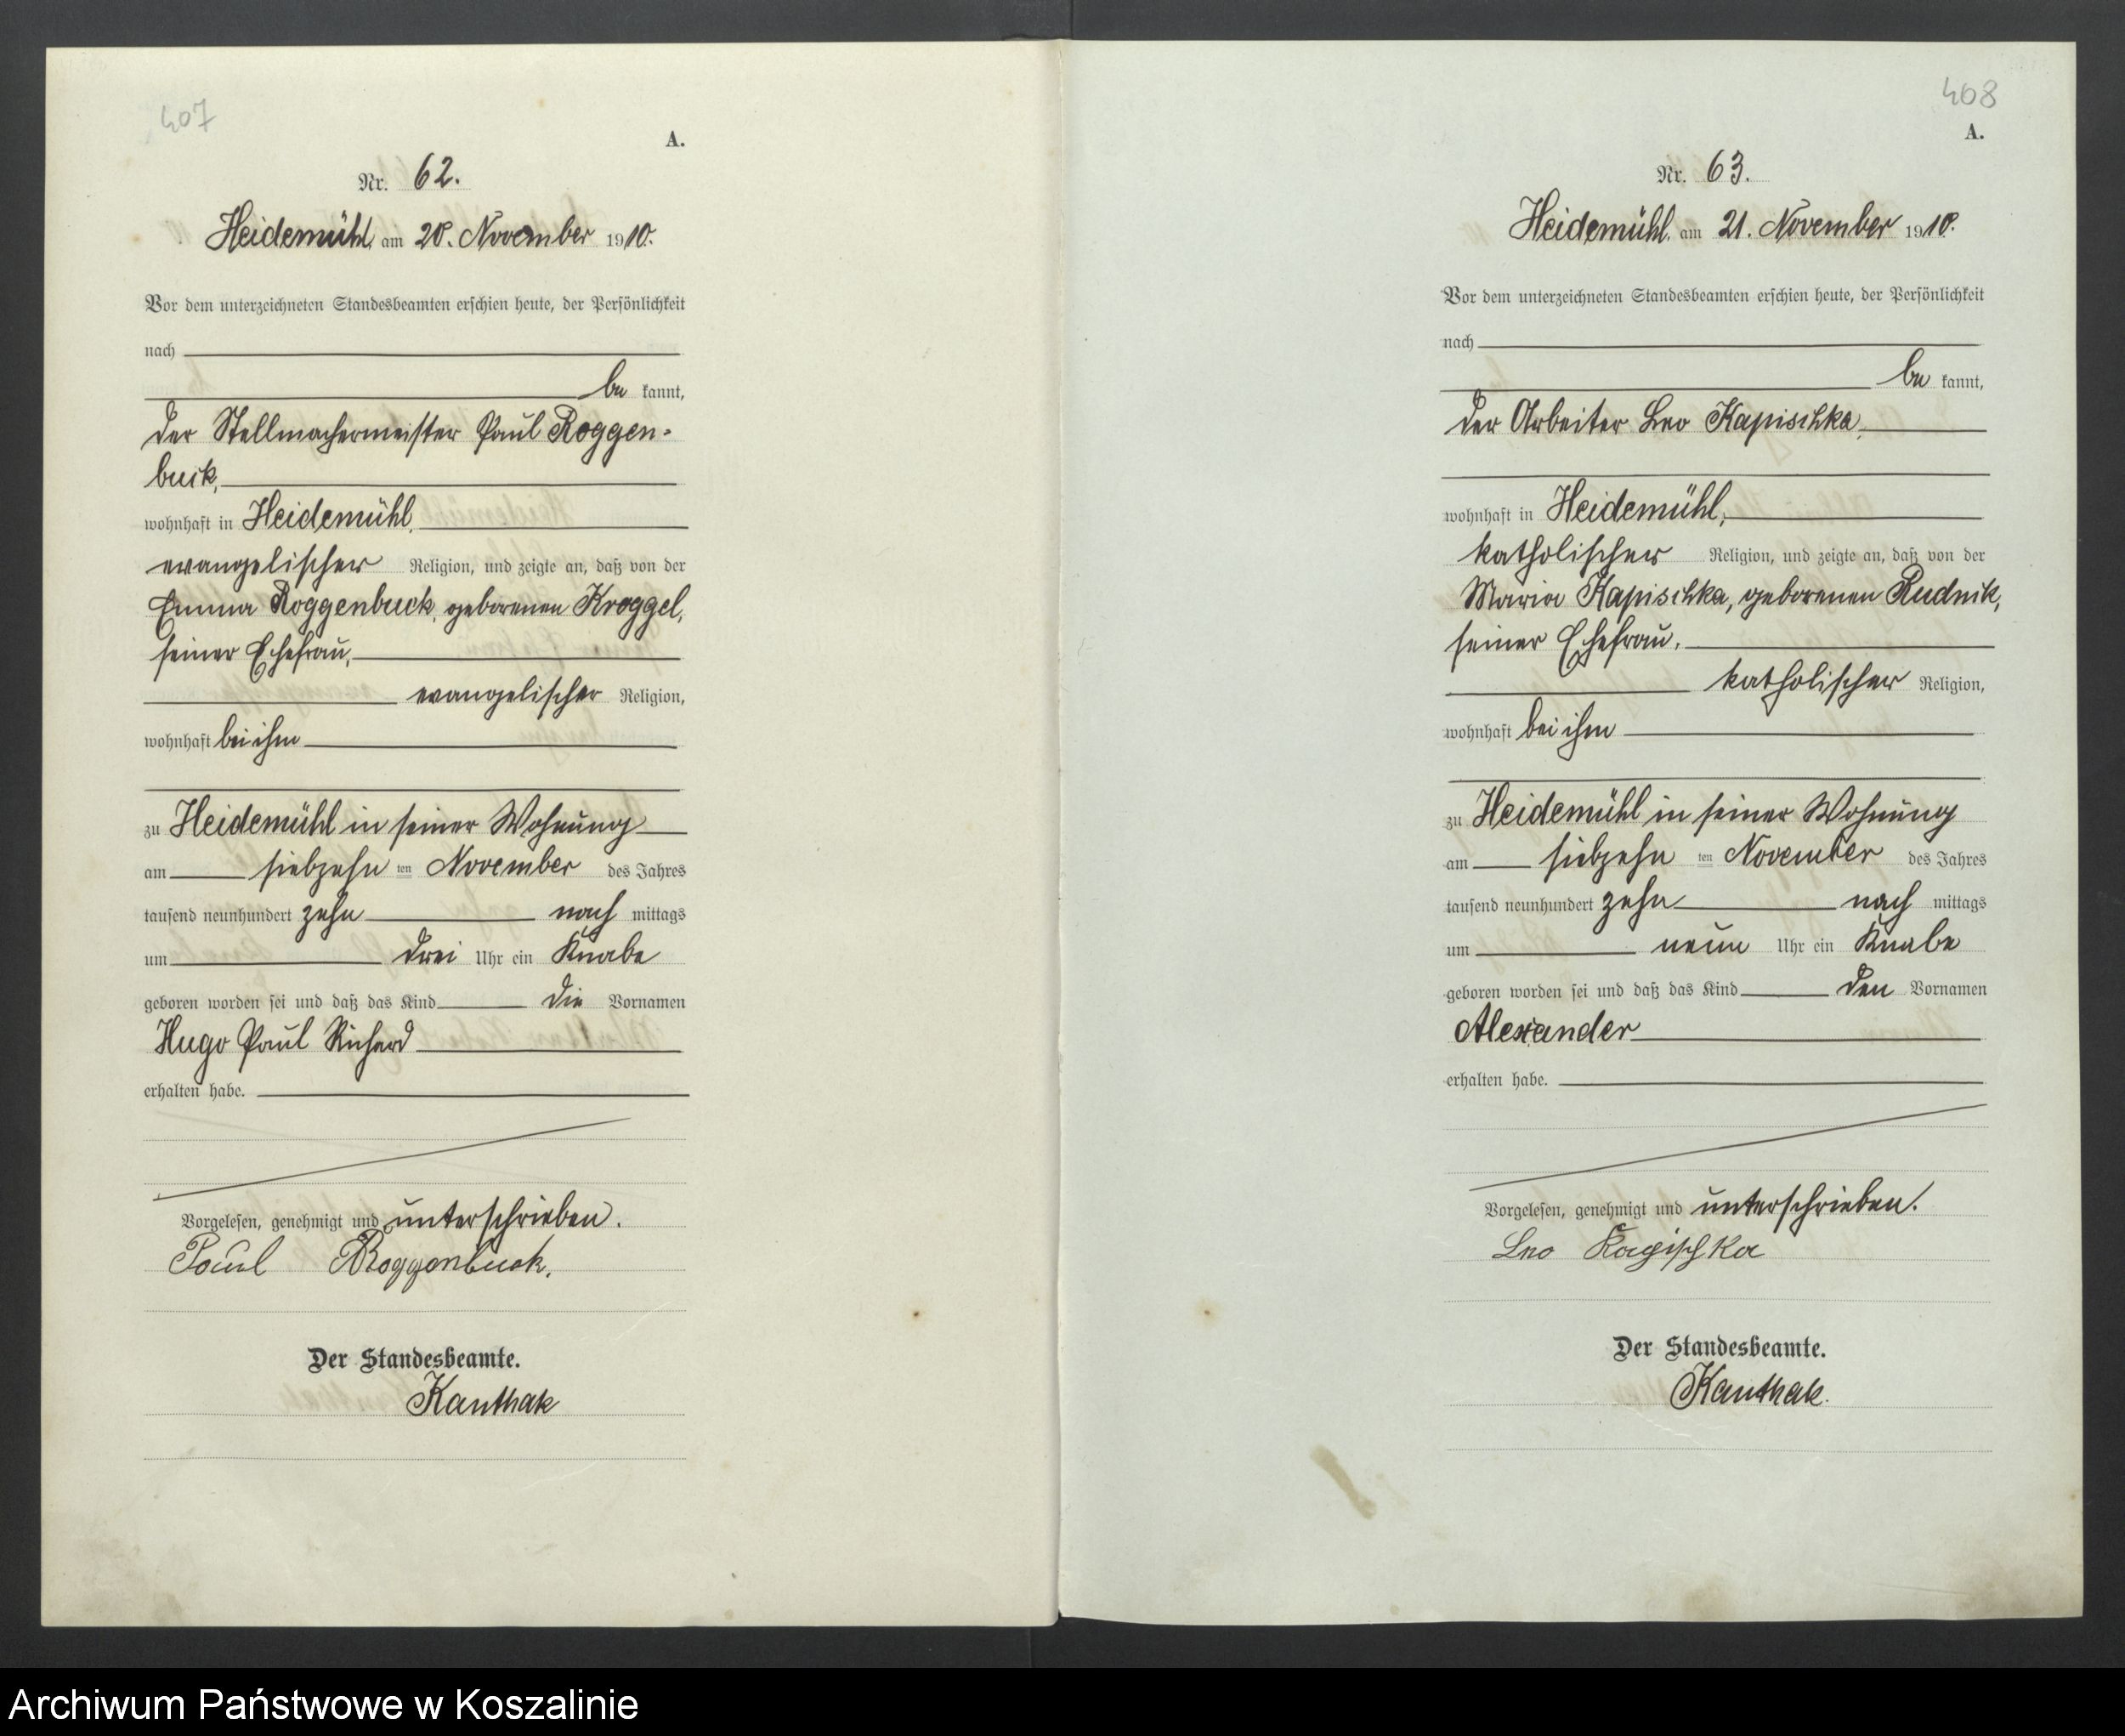 407
A.
Nr. 62.
Heidemühl, am 20. November 1910.
Vor dem unterzeichneten Standesbeamten erschien heute, der Persönlichkeit
nach
be kannt,
der Stellmachermeister Paul Roggen-
buck,
wohnhaft in Heidemühl,
evangelischer Religion, und zeigte an, daß von der
Emma Roggenbuck, geborenen Kroggel,
seiner Ehefrau,
evangelischer Religion,
wohnhaft bei ihm
zu Heidemühl in seiner Wohnung
am siebzehn ten November des Jahres
tausend neunhundert zehn nach mittags
um drei Uhr ein Knabe
geboren worden sei und daß das Kind die Vornamen
Hugo Paul Richard
erhalten habe.
Vorgelesen, genehmigt und unterschrieben.
Paul Roggenbuck.
Der Standesbeamte.
Kanthak
408
A.
Nr. 63.
Heidemühl, am 21. November 1910.
Vor dem unterzeichneten Standesbeamten erschien heute, der Persönlichkeit
nach
be kannt,
der Arbeiter Leo Kapischka,
wohnhaft in Heidemühl,
katholischer Religion, und zeigte an, daß von der
Maria Kapischka, geborenen Rudnik,
seiner Ehefrau,
katholischer Religion,
wohnhaft bei ihm
zu Heidemühl in seiner Wohnung
am siebzehn ten November des Jahres
tausend neunhundert zehn nach mittags
um neun Uhr ein Knabe
geboren worden sei und daß das Kind den Vornamen
Alexander
erhalten habe.
Vorgelesen, genehmigt und unterschrieben.
Leo Kapischka
Der Standesbeamte.
Kanthak.
Archiwum Państwowe w Koszalinie